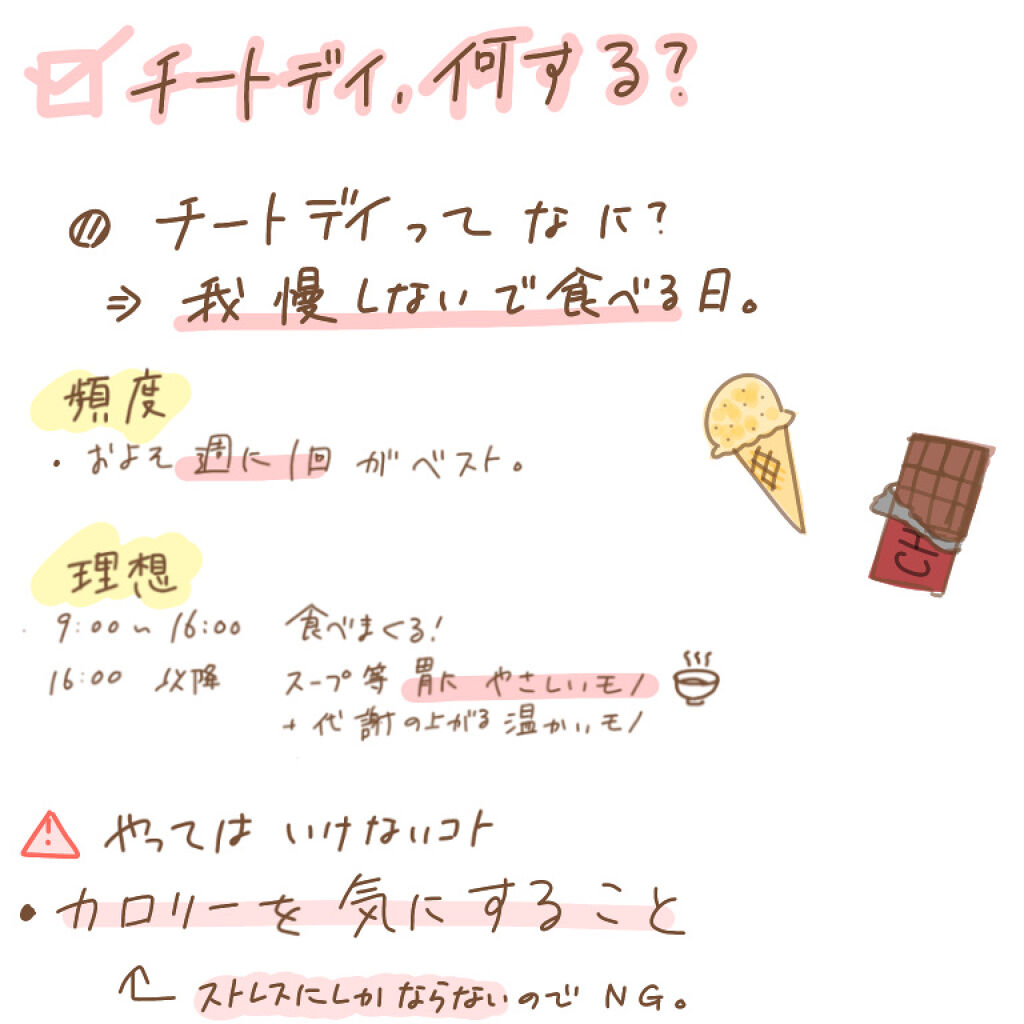 チートデイ,何する?
チートデイってなに?
⇒ 我慢しないで食べる日。
頻度
・およそ週に1回がベスト。
理想
9:00〜16:00 食べまくる!
16:00 以降 スープ等 胃に やさしいモノ
+ 代謝の上がる温かいモノ
CH
やってはいけないコト
・カロリーを気にすること
ストレスにしかならないのでNG。